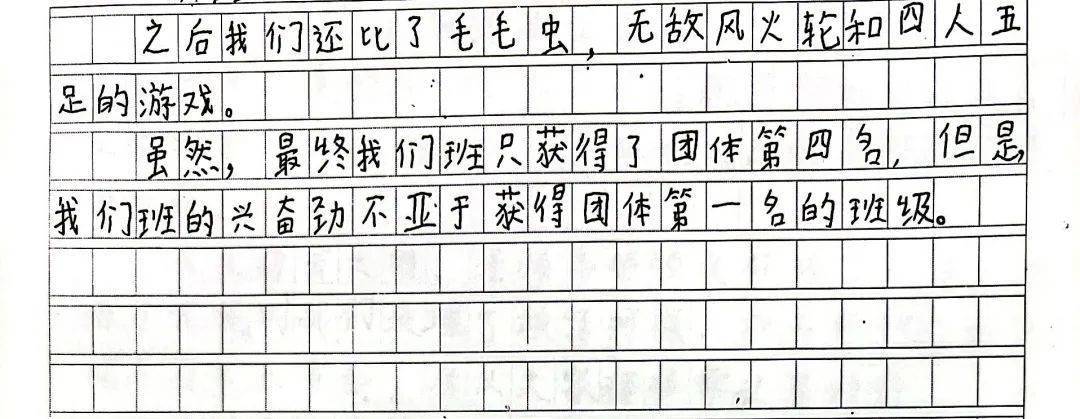 之后我们还比了毛毛虫，无敌风火轮和四人五
足的游戏。
虽然，最终我们班只获得了团体第四名，但是，
我们班的兴奋劲不亚于获得团体第一名的班级。